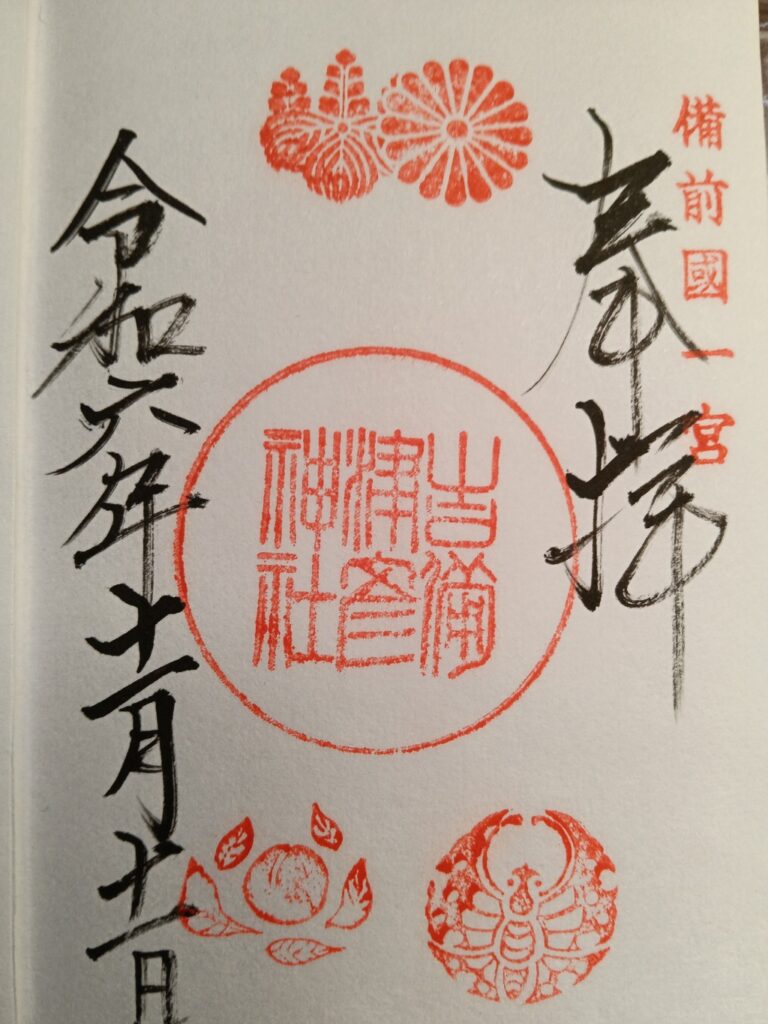 備前國一宮
奉拝
吉備
津彦
神社
令和六年十一月十一日